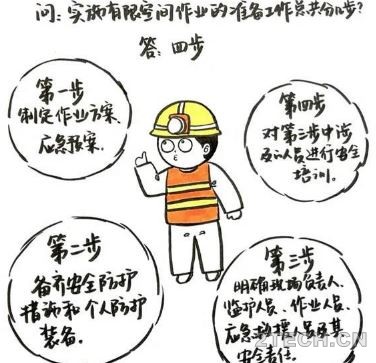 问:实施有限空间作业的准备工作总共分几步?
答:四步
第一步
制定作业方案、
应急预案.
第四步
对第三步中涉
及人员进行安全
培训.
第二步
备齐安全防护
措施和个人防护
装备.
第三步
明确现场负责人、
监护人员、作业人员、
应急救援人员及其
安全责任.
2TECH.CN